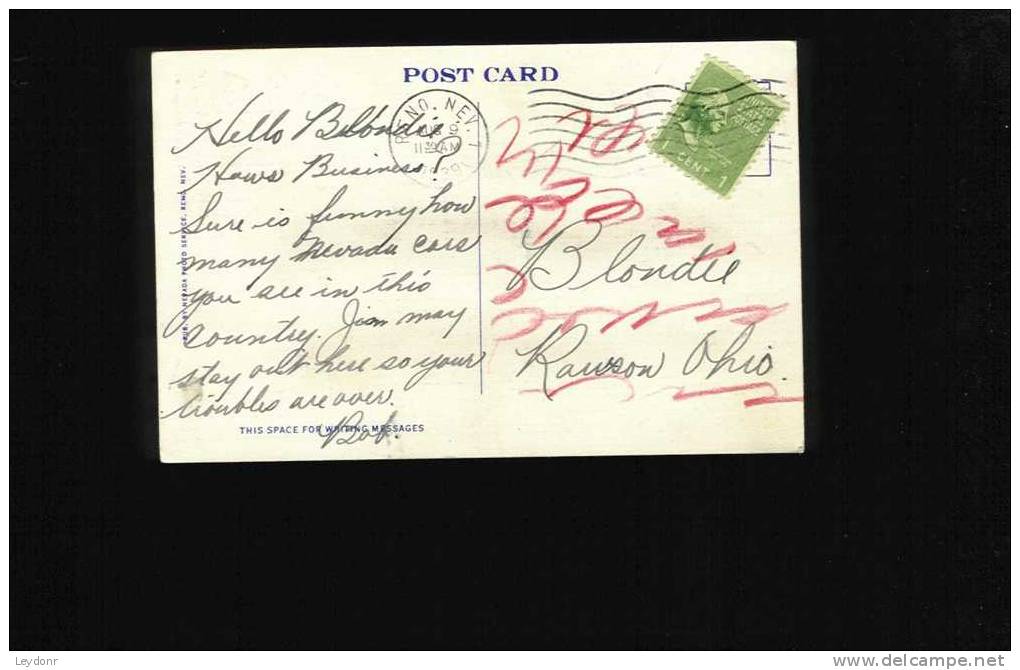 POST CARD
RENO, NEV. 1
AUG 9
11 30 AM
1939
UNITED STATES POSTAGE
1 CENT 1
Hello Blondie
Hows Business?
Sure is funny how
many Nevada cars
you see in this
country. Jim may
stay out here so your
troubles are over.
Bob.
THIS SPACE FOR WRITING MESSAGES
PUB. BY NEVADA PHOTO SERVICE, RENO, NEV.
Blondie
Rawson Ohio.
Leydonr
delcampe.net